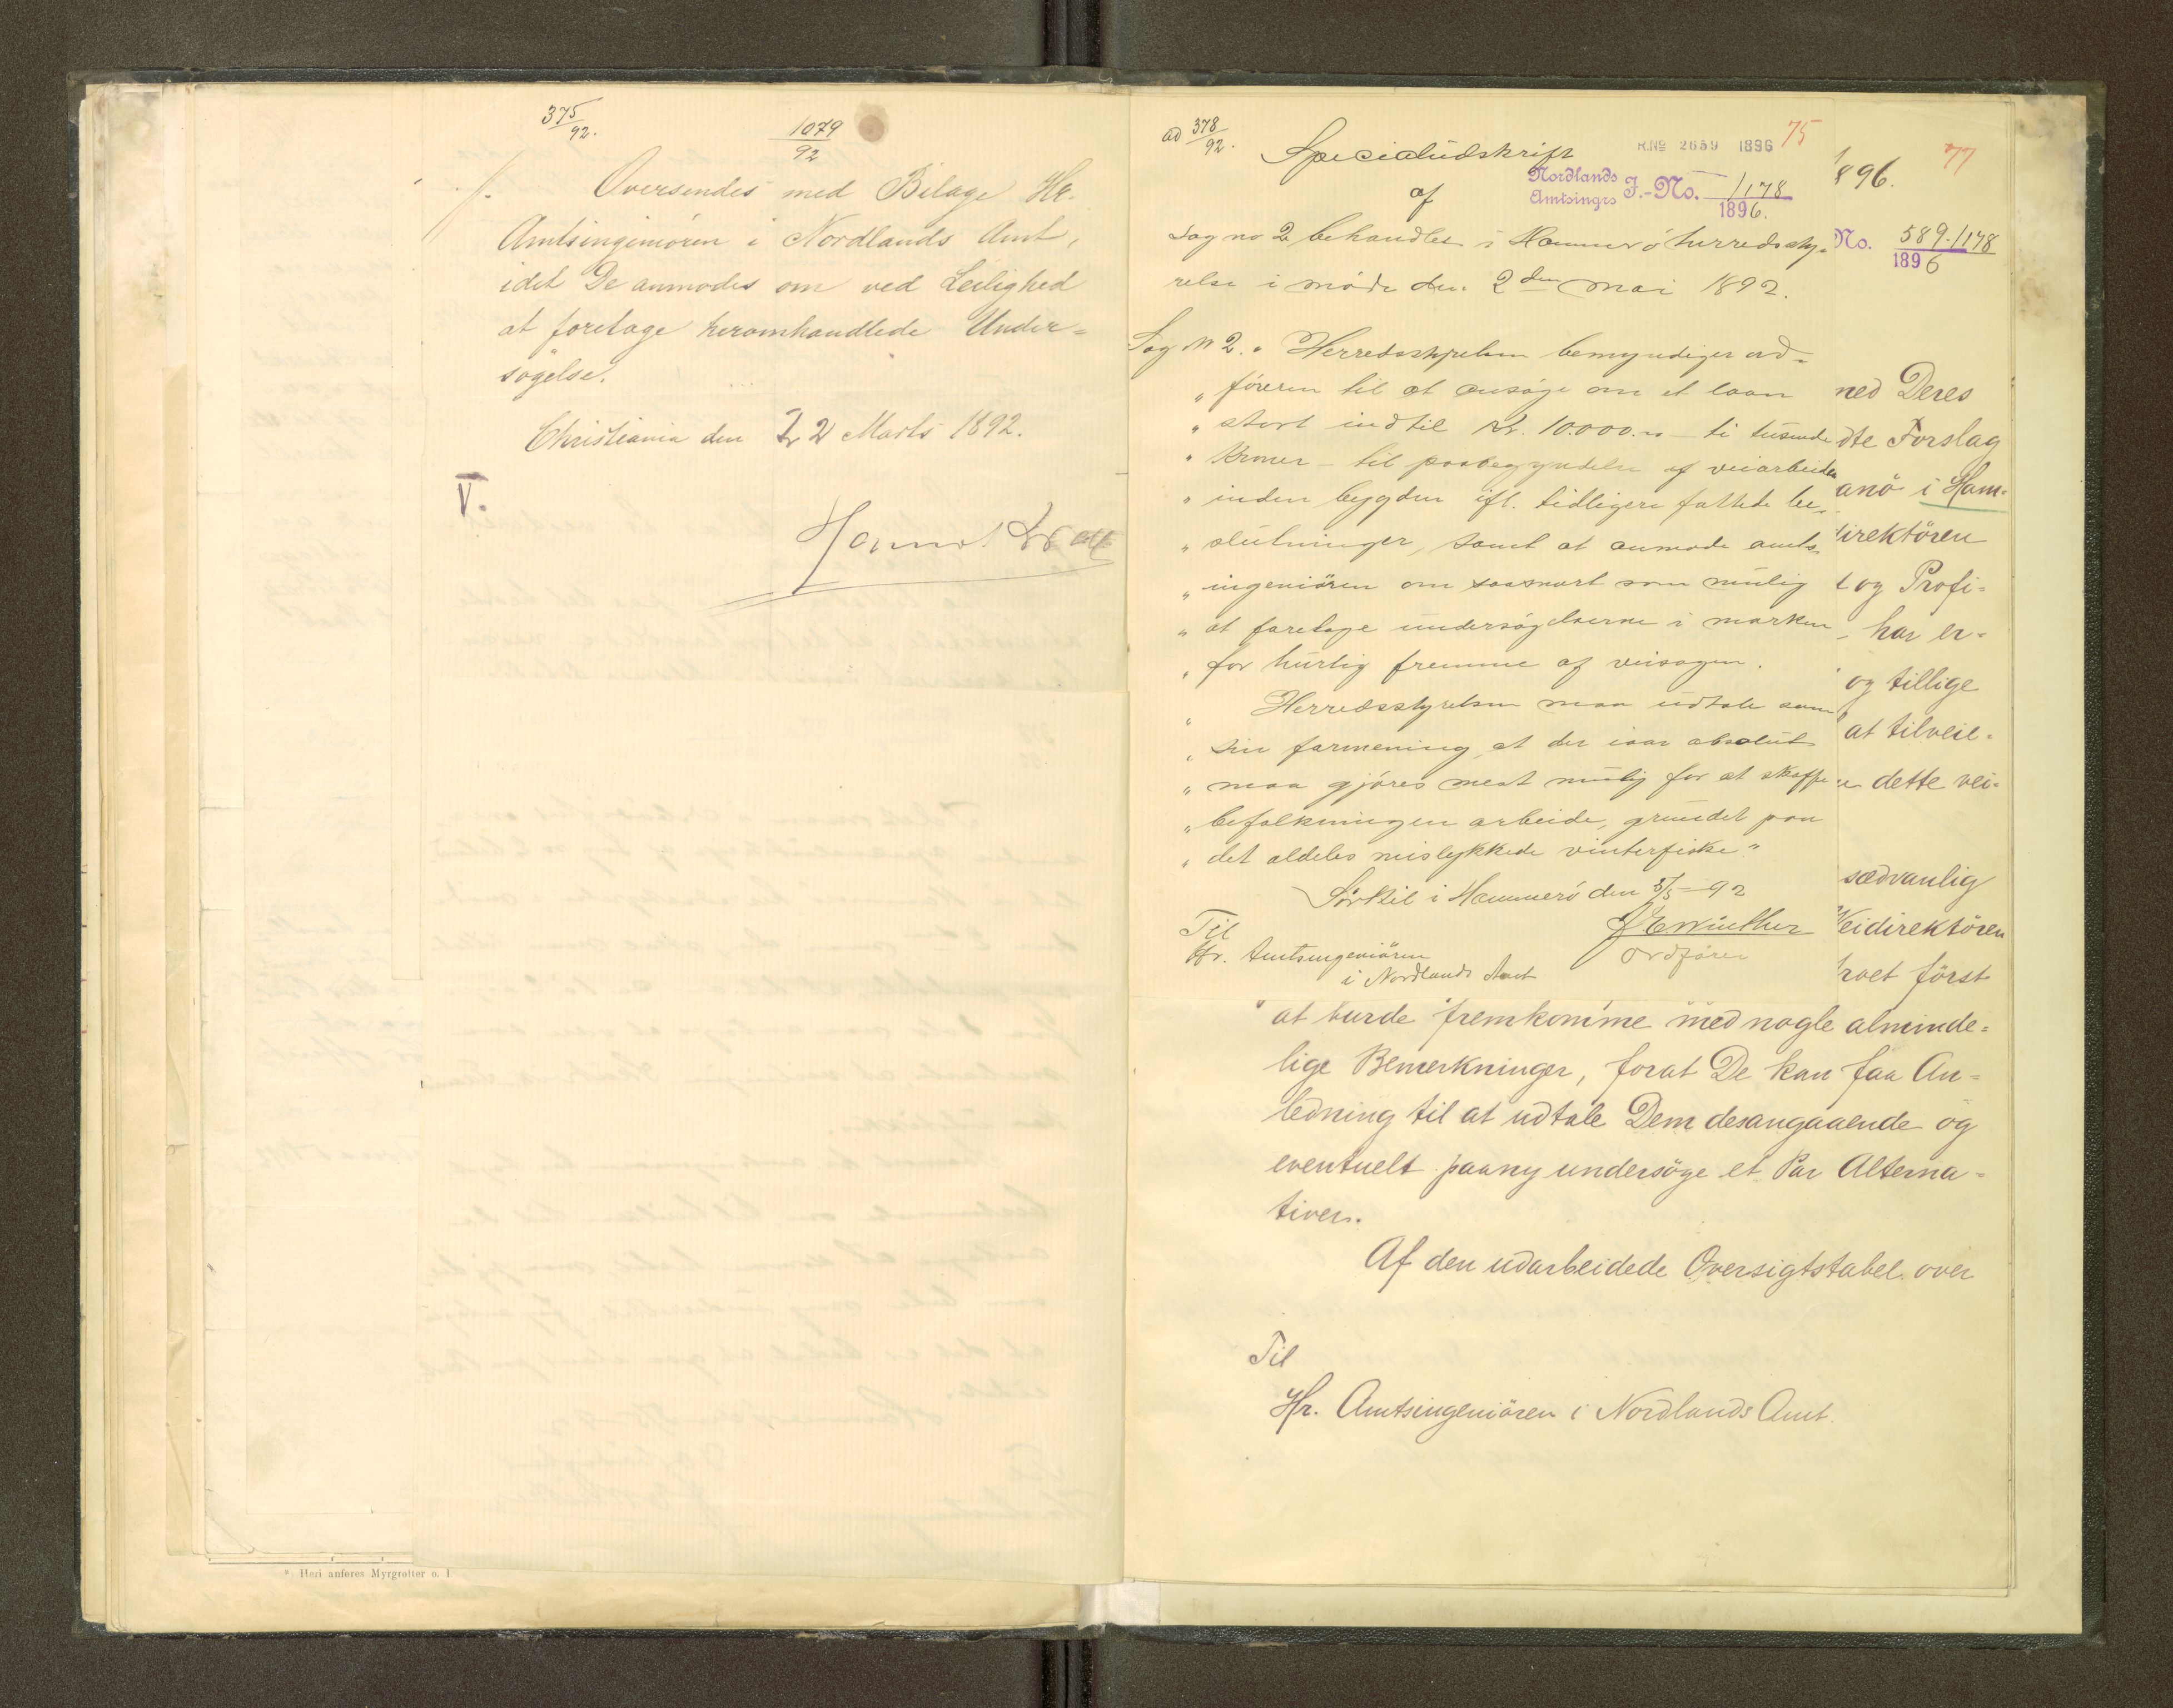 375/92.
1079/92
./. Oversendes med Bilage Hr.
Amtsingeniören i Nordlands Amt,
idet De anmodes om ved Leilighed
at foretage heromhandlede Under=
sögelse.
Christiania den 22 Marts 1892.
V.
* Heri anföres Myrgrøfter o. l
ad 378/92.
Specialudskrift
af
R.No 2659 1896
75
Nordlands Amtsingrs J.-No. 1178/1896.
Sag no 2 behandlet i Hammerö herredssty=
relse i möde den 2den mai 1892.
Sag No 2. " Herredsstyrelsen bemyndiger ord=
" föreren til at ansöge om et laan
" stort indtil Kr. 10.000.00 – ti tusinde
" Kroner – til paabegyndelse af veiarbeider
" inden bygden ifl. tidligere fattede be=
" slutninger, samt at anmode amts=
" ingeniören om saasnart som mulig
" at foretage undersögelserne i marken
" for hurtig fremme af veisagen.
" Herredsstyrelsen maa udtale som
" sin formening, at der iaar absolut
" maa gjöres mest mulig for at skaffe
" befolkningen arbeide, grundet paa
" det aldeles mislykkede vinterfiske"
i Hammerö den 5/5 – 92
J E Winther
Ordförer
Til
Hr. Amtsingeniören
i Nordlands Amt
896.
77
No. 589.1178/1896
ned Deres
dte Forslag
anö i Ham=
direktören
t og Profi=
har er=
og tillige
at tilveie=
dette vei=
sædvanlig
Veidirektören
rvet först
at burde fremkomme med nogle alminde=
lige Bemerkninger, forat De kan faa An=
ledning til at udtale Dem desangaaende og
eventuelt paany undersöge et Par Alterna=
tiver.
Af den udarbeidede Oversigtstabel over
Til
Hr. Amtsingeniören i Nordlands Amt.